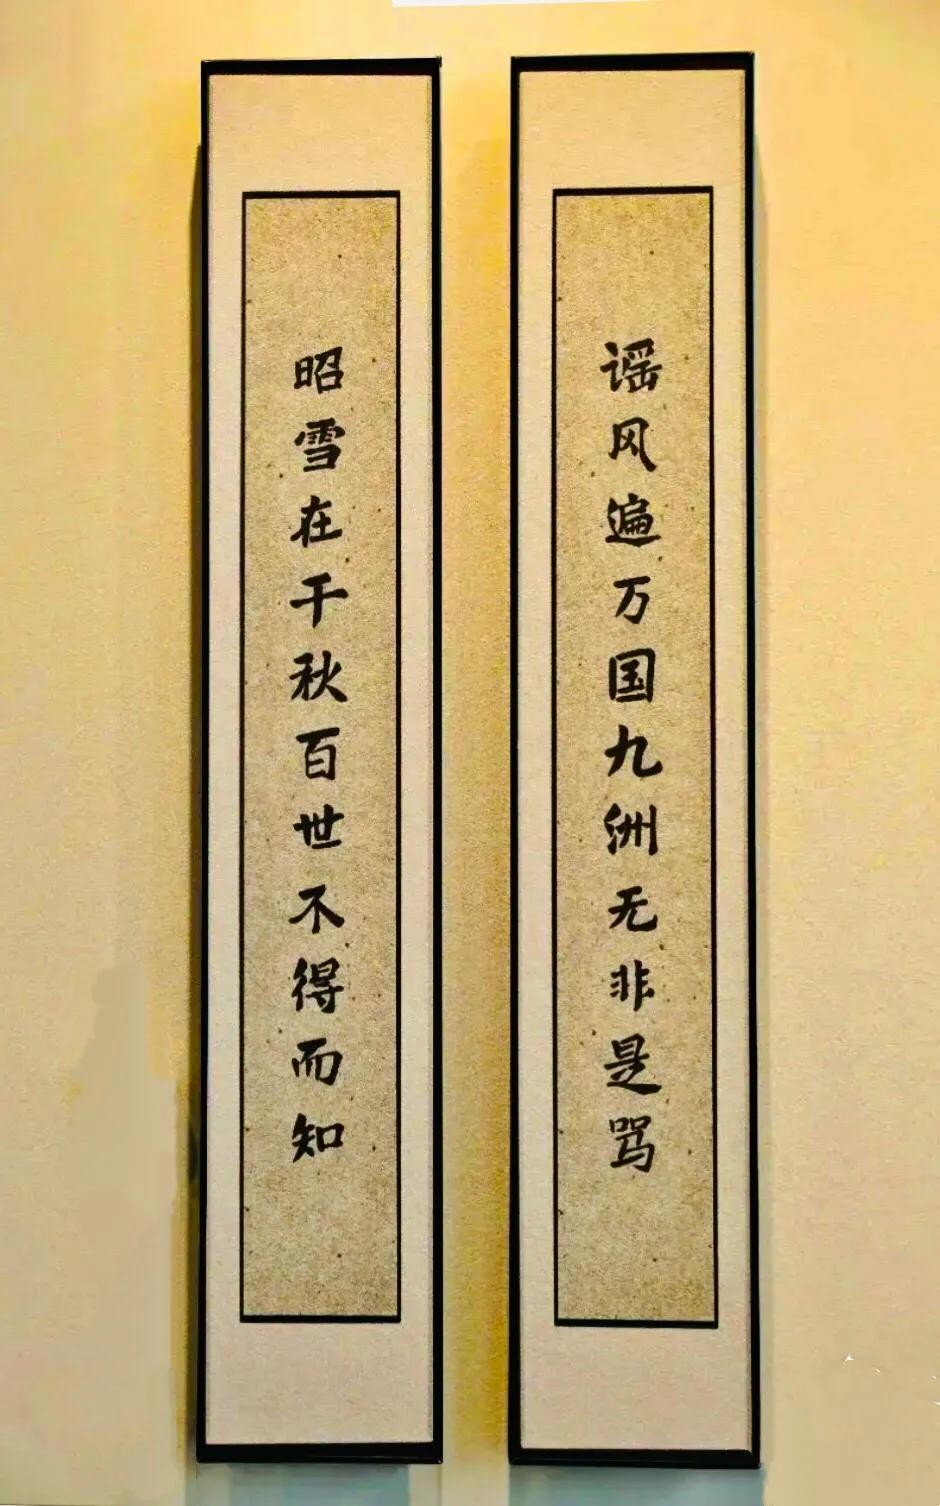 谣风遍万国九洲无非是骂
昭雪在千秋百世不得而知